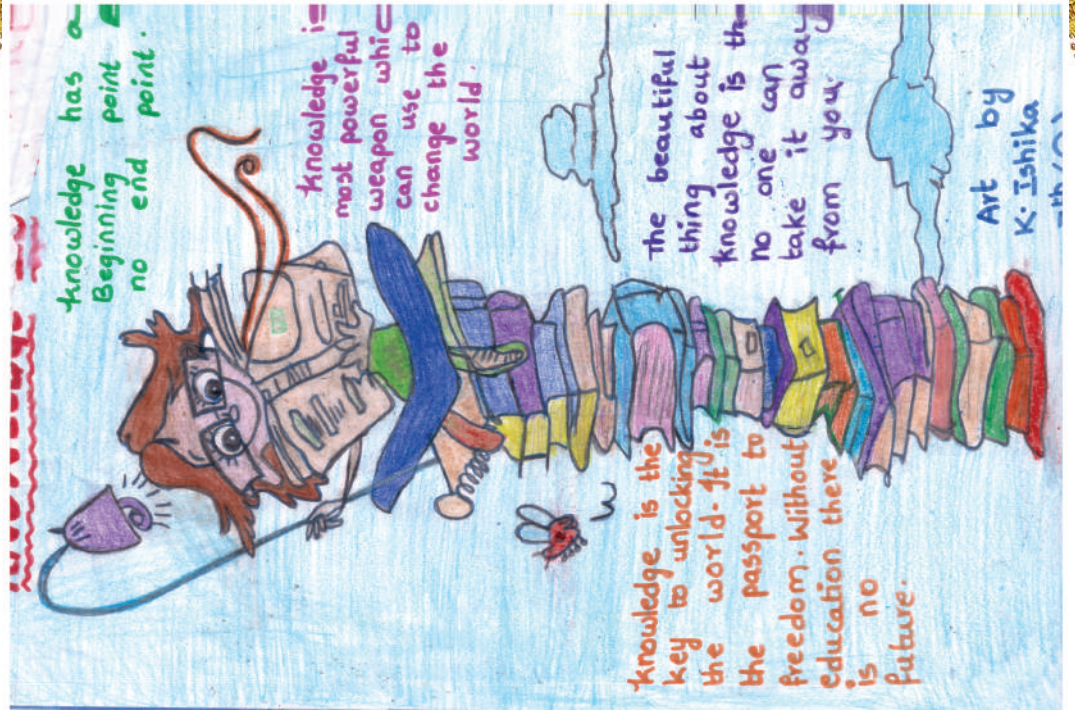 knowledge has a
Beginning point
no end point.
knowledge is
most powerful
weapon whic
can use to
change the
world.
The beautiful
thing about
knowledge is th
no one can
take it away
from you
knowledge is the
key to unlocking
the world. It is
the passport to
freedom. Without
education there
is no
future.
Art by
K. Ishika